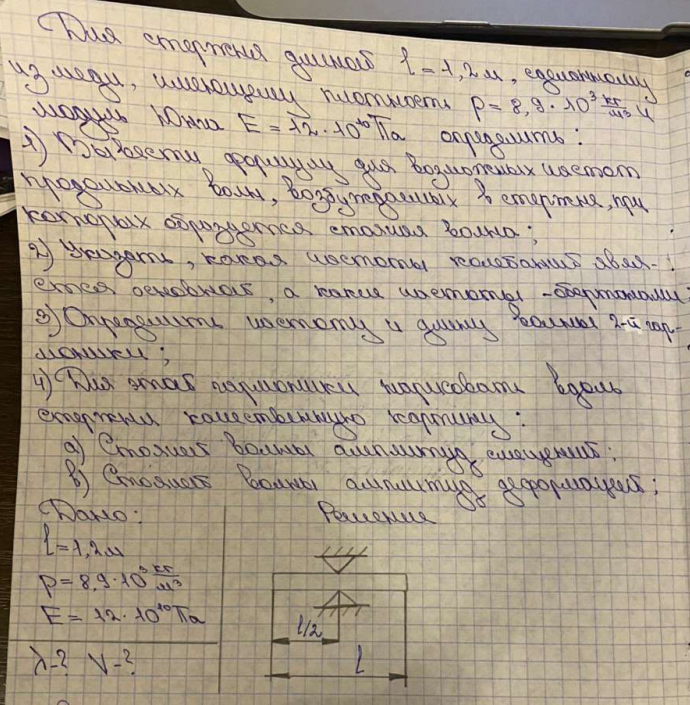 Для стержня длиной l = 1,2 м, сделанному
из меди, имеющему плотность ρ = 8,9 · 10³ кг/м³ и
модуль Юнга E = 12 · 10¹⁰ Па определить:
1) Вывести формулу для возможных частот
продольных волн, возбуждаемых в стержне, при
которых образуется стоячая волна;
2) Указать, какая частоты колебаний явля-
ется основной, а какие частоты - обертонами;
3) Определить частоту и длину волны 2-й гар-
моники;
4) Для этой гармоники нарисовать вдоль
стержня качественную картину:
а) Стоячей волны амплитуд смещений;
в) Стоячей волны амплитуд деформаций;
Дано:
Решение
l = 1,2 м
ρ = 8,9 · 10³ кг/м³
E = 12 · 10¹⁰ Па
λ - ? ν - ?
l/2
l